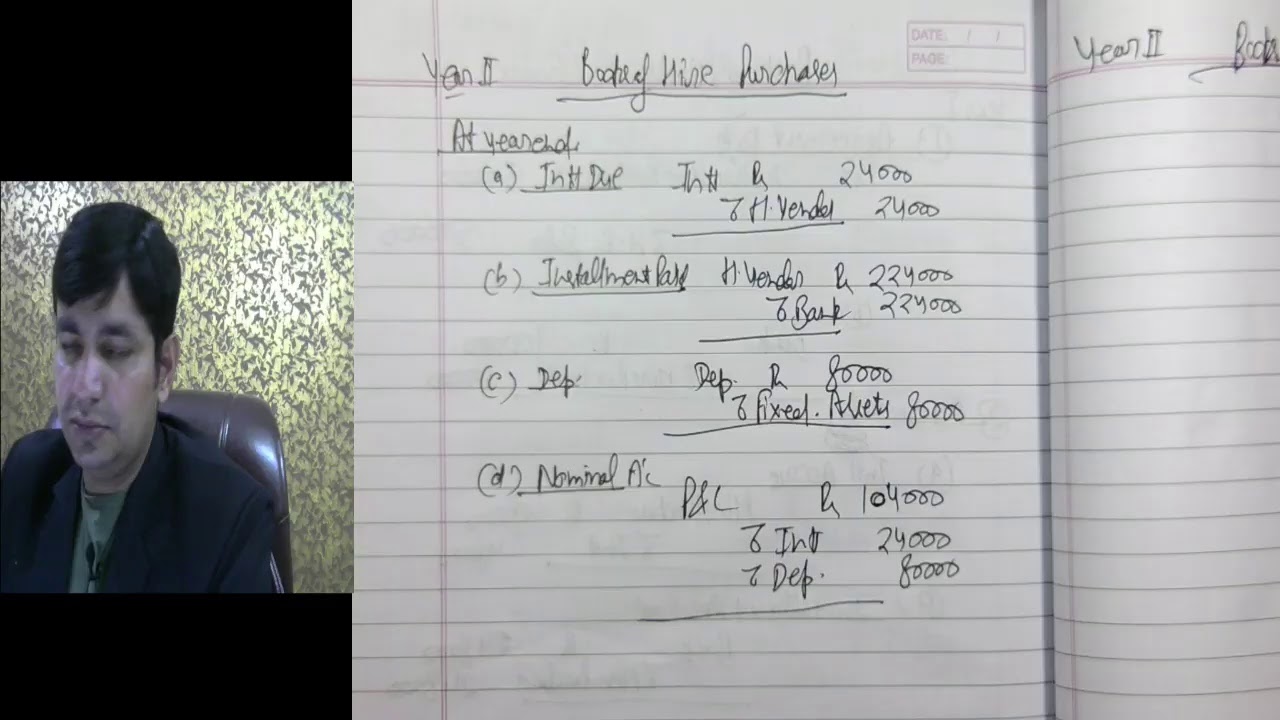 DATE: / /
PAGE:
Year II Books of Hire Purchases
At yearend.
(a) Intt Due Intt Dr 24000
To H. Vendor 24000
(b) Installment Paid H. Vendor Dr 224000
To Bank 224000
(c) Dep. Dep. Dr 80000
To Fixed. Assets 80000
(d) Nominal A/c
P&L Dr 104000
To Intt 24000
To Dep. 80000
Year II Book